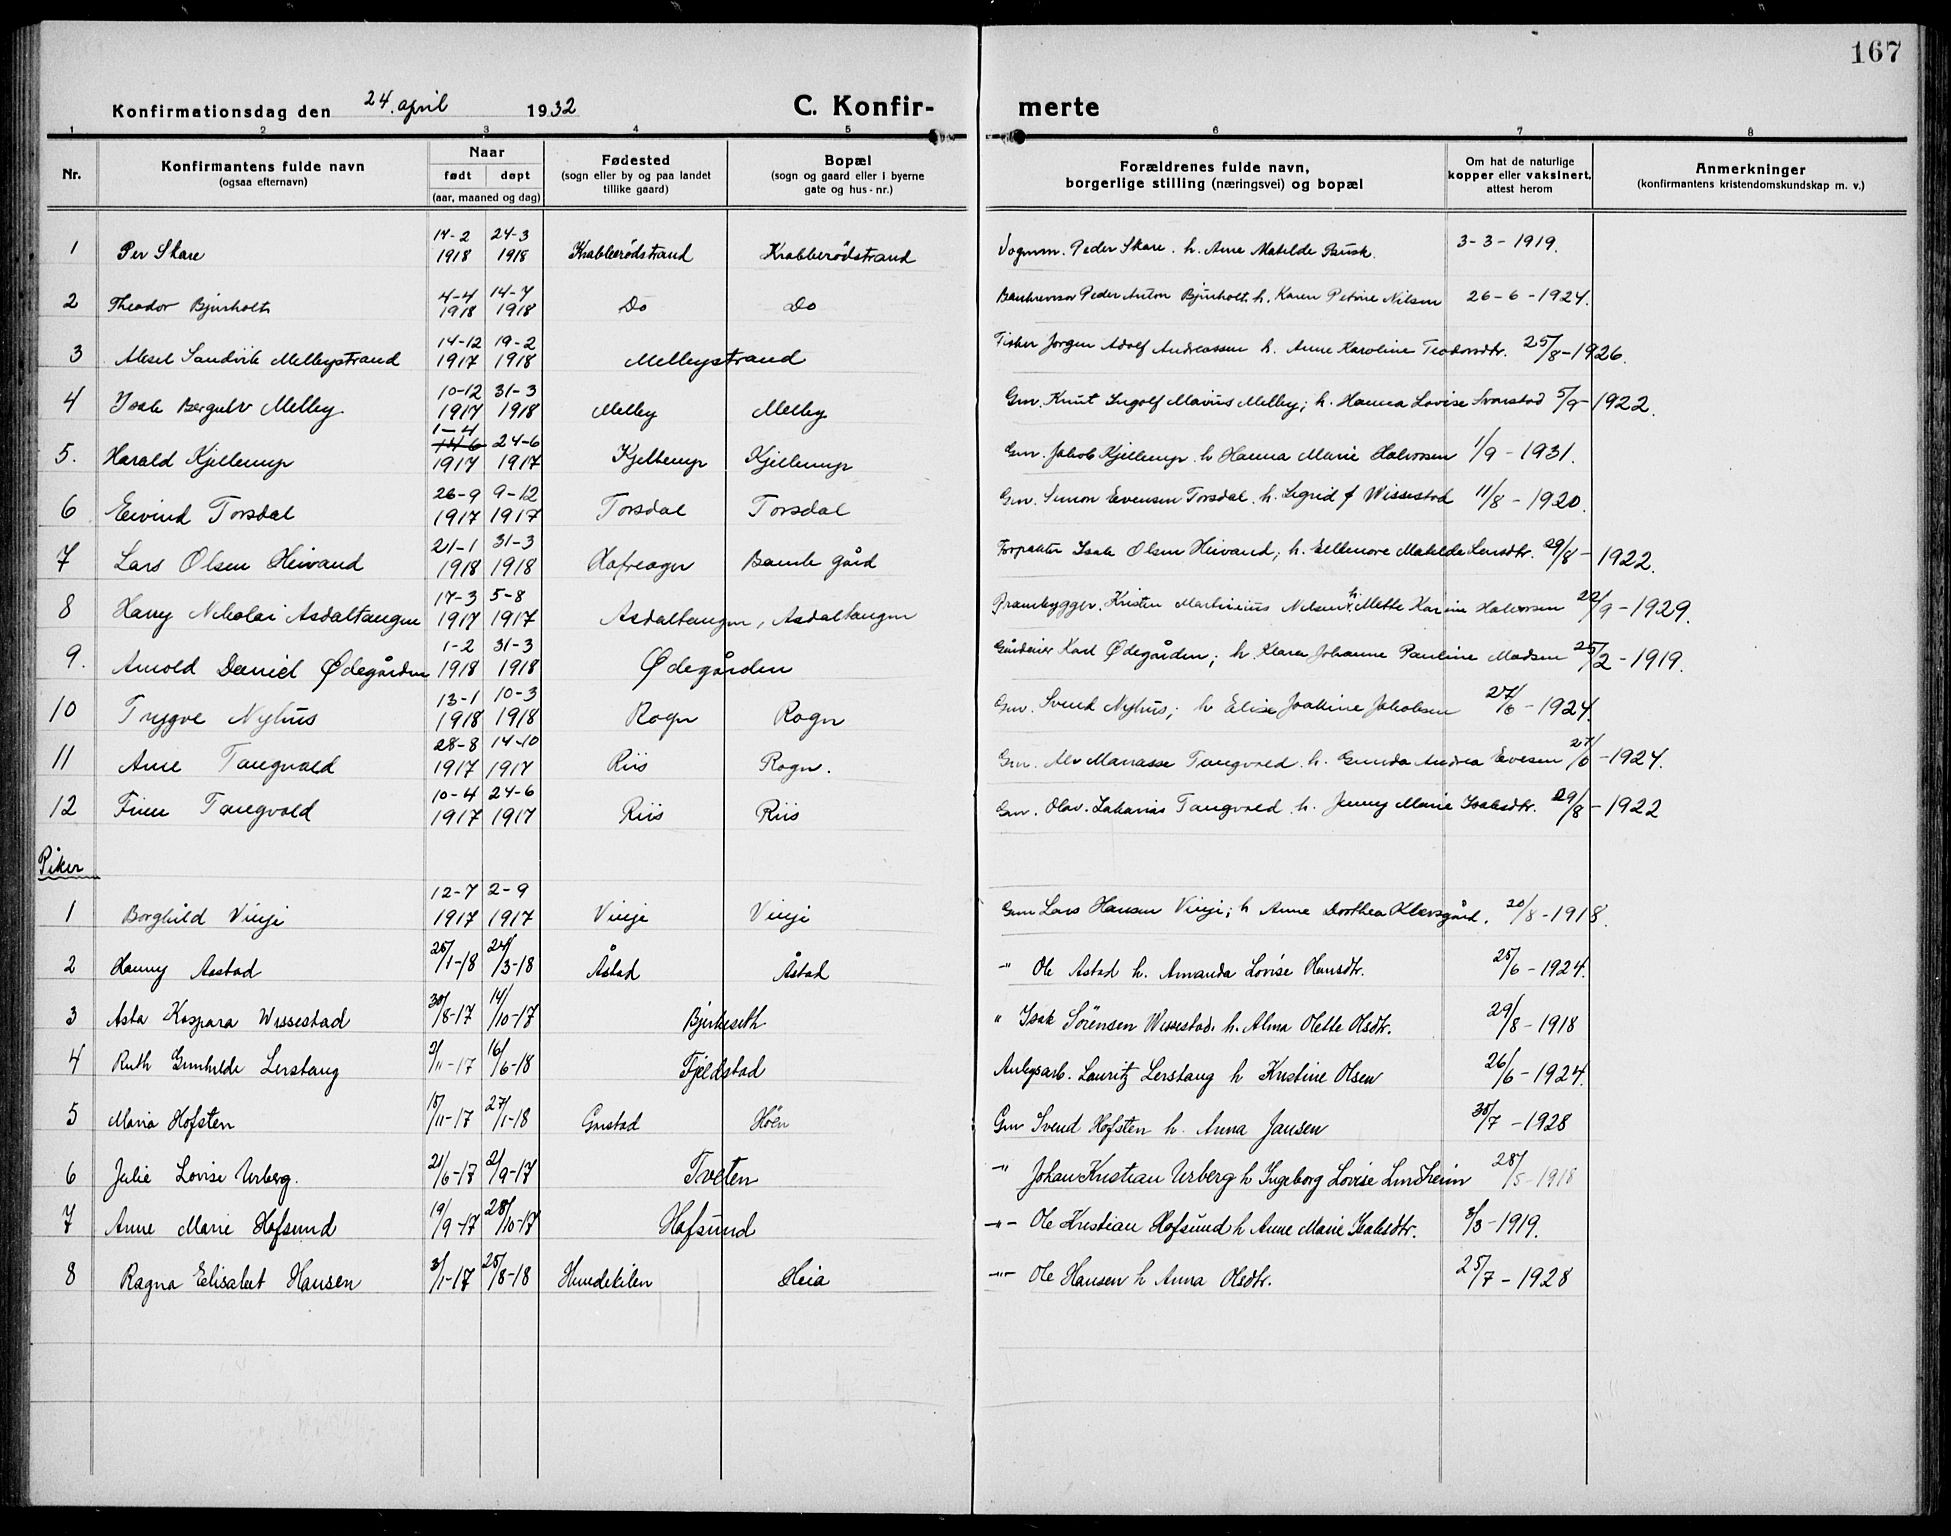 167
Konfirmationsdag den 24. april 1932 C. Konfir- merte
1 2 3 4 5 6 7 8
Nr. Konfirmantens fulde navn (ogsaa efternavn) Naar født døpt (aar, maaned og dag) Fødested (sogn eller by og paa landet tillike gaard) Bopæl (sogn og gaard eller i byerne gate og hus-nr.) Forældrenes fulde navn, borgerlige stilling (næringsvei) og bopæl Om hat de naturlige kopper eller vaksinert, attest herom Anmerkninger (konfirmantens kristendomskundskap m. v.)
1 Per Skare 14-2 1918 24-3 1918 Krabberødstrand Krabberødstrand Vognm. Peder Skare. h. Ane Matilde Busk. 3-3-1919.
2 Theodor Bjurholt 4-4 1918 14-7 1918 Do Do Peder Anton Bjurholt, h. Karen Petrine Nilsen 26-6-1924.
3 Aksel Sandvik Melbystrand 14-12 1917 19-2 1918 Melbystrand Fisker Jørgen Adolf Andreassen h. Anne Karoline Teodorsdtr. 25/8-1926.
4 Isak Bergulv Melby 10-12 1917 31-3 1918 Melby Melby Gm. Knut Ingolf Mavius Melby; h. Hanna Lovise Svarstad 5/9-1922.
5. Harald Kjellerup 1-4 1917 24-6 1917 Kjellerup Kjellerup Gm. Jakob Kjellerup. h Hanna Marie Halvorsen 1/9-1931.
6 Eivind Torsdal 26-9 1917 9-12 1917 Torsdal Torsdal Gm. Simon Evensen Torsdal. h. Sigrid f Wissestad 11/8-1920.
7 Lars Olsen Heivand 21-1 1918 31-3 1918 Hafreager Bamle gård Forpakter Isak Olsen Heivand; h. Ellenore Matilde Larsdtr. 29/8-1922.
8 Harry Nikolai Asdaltangen 17-3 1917 5-8 1917 Asdaltangen, Asdaltangen Prambygger. Kristen Martinius Nilsen h. Mette Karine Halvorsen 22/9-1929.
9. Arnold Daniel Ødegården 1-2 1918 31-3 1918 Ødegården Gårdeier Karl Ødegården; h. Klara Johanne Pauline Madsen 25/2-1919.
10 Trygve Nyhus 13-1 1918 10-3 1918 Rogn Rogn Gm. Svend Nyhus; h Elise Joakine Jakobsen 27/6-1924.
11 Arne Tangvald 28-8 1917 14-10 1917 Riis Rogn. Gm. Alv Manasse Tangvald. h. Gunda Andrea Evensen 27/6-1924.
12 Finn Tangvald 10-4 1917 24-6 1917 Riis Riis Gm. Olav Zakarias Tangvald h. Jenny Marie Isaksdtr. 29/8-1922
Piker
1 Borghild Vinje 12-7 1917 2-9 1917 Vinje Vinje Gm Lars Hansen Vinje; h Anne Dorthea Klevsgård. 20/8-1918.
2 Hanny Aastad 25/1-18 24/3-18 Åstad Åstad -"- Ole Åstad h. Amanda Lovise Hansdtr. 25/6-1924.
3 Asta Kaspara Wissestad 30/8-17 14/10-17 Bjerkeseth " Isak Sørensen Wissestad. h. Alma Olette Olsdtr. 29/8-1918
4 Ruth Gunhilde Lerstang 2/11-17 16/6-18 Fjeldstad Anlegsarb. Lauritz Lerstang h Kristine Olsen 26/6-1924.
5 Maria Hofsten 15/11-17 27/1-18 Grostad Høen Gm Svend Hofsten h. Anna Jansen 30/7-1928
6 Julie Lovise Urberg. 21/6-17 2/9-17 Tveten -"- Johan Kristian Urberg h Ingeborg Lovise Lindheim 28/5-1918
7 Anne Marie Hafsund 19/9-17 28/10-17 Hafsund -"- Ole Kristian Hafsund h Anne Marie Isaksdtr. 3/3-1919.
8 Ragna Elisabet Hansen 3/1-17 25/8-18 Hundekilen Heia -"- Ole Hansen h Anna Olsdtr. 25/7-1928